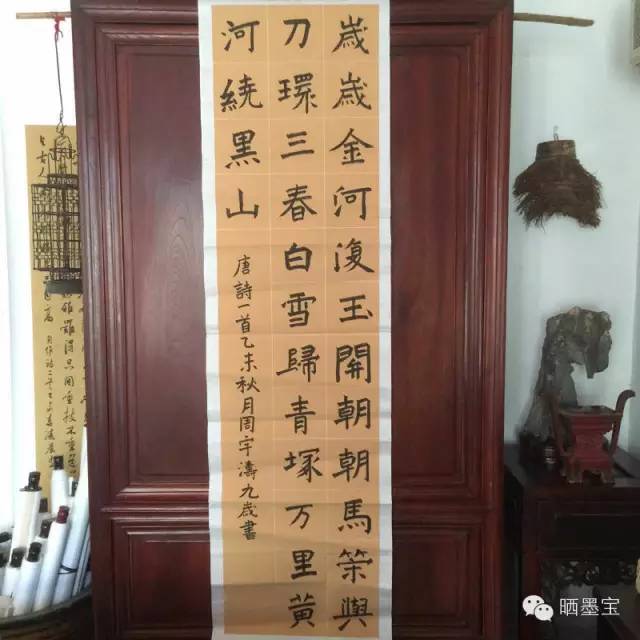 歲歲金河復玉開朝朝馬策與
刀環三春白雪歸青塚万里黃
河繞黑山
唐詩一首乙未秋月周宇濤九歲書
晒墨宝